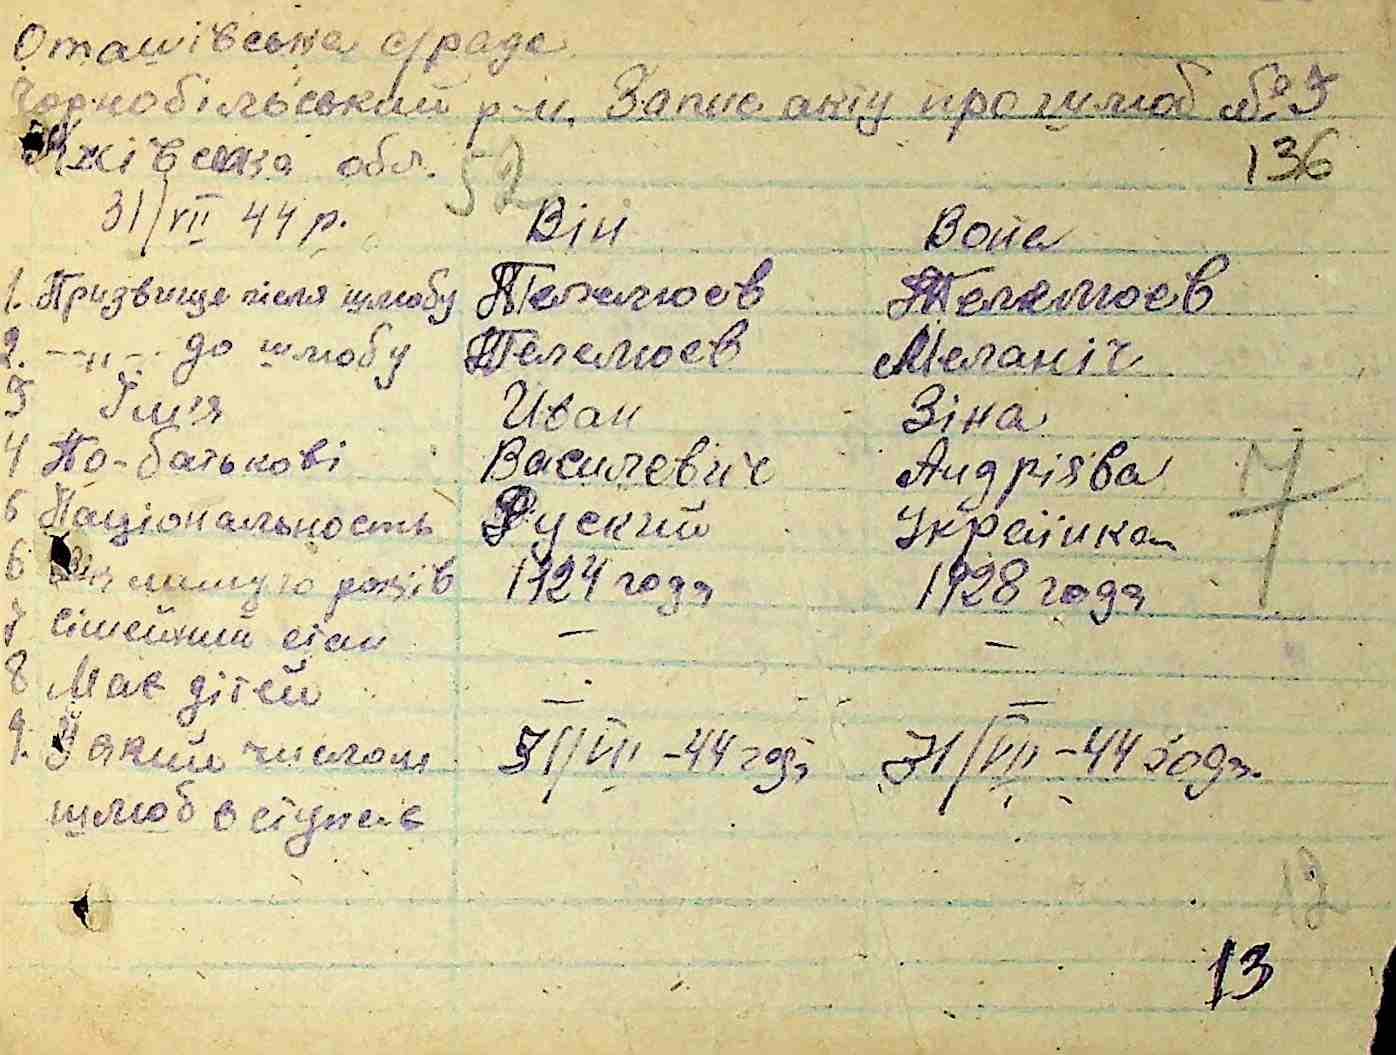 Оташівська с/рада
Чорнобільський р-н. Запис акту про шлюб №3
Київська обл. 52 136
31/VII 44 р. Він Вона
1. Призвище після шлюбу Телелюєв Телелюєв
2. —"— до шлюбу Телелюєв Меланіч
3 Ім'я Иван Зіна
4 По-батькові Василевич Андріява
5 Національность Руский Українка
6 літ років 1924 года 1928 года
7 Сімейний стан — —
8 Має дітей — —
9. Яким числом 31/VII -44 года 31/VII -44 года.
шлюб вступає
12
13